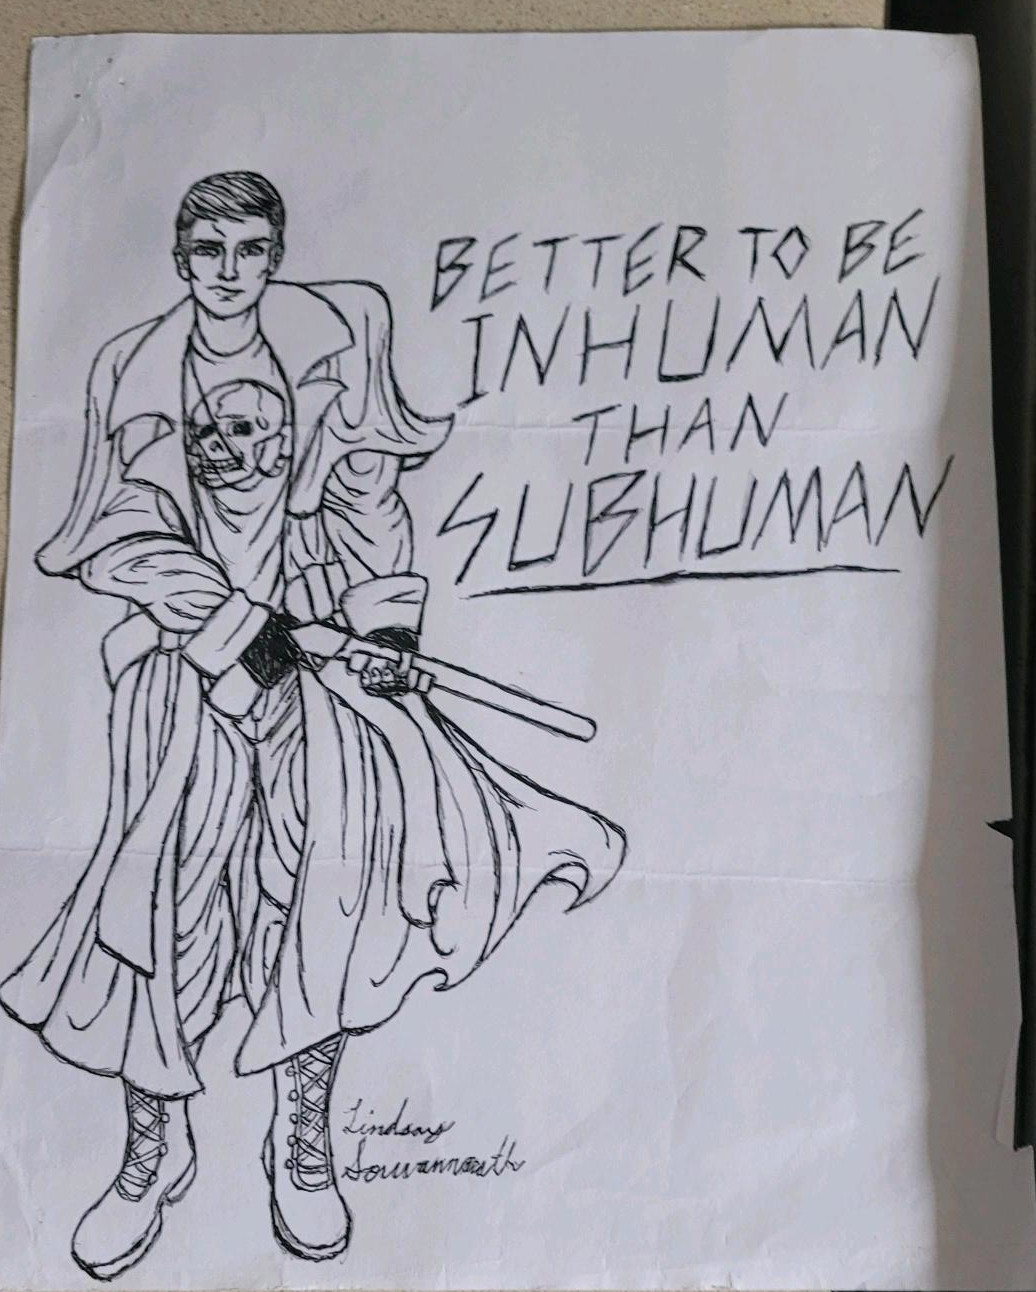 BETTER TO BE
INHUMAN
THAN
SUBHUMAN
Lindsay
Souvannarath